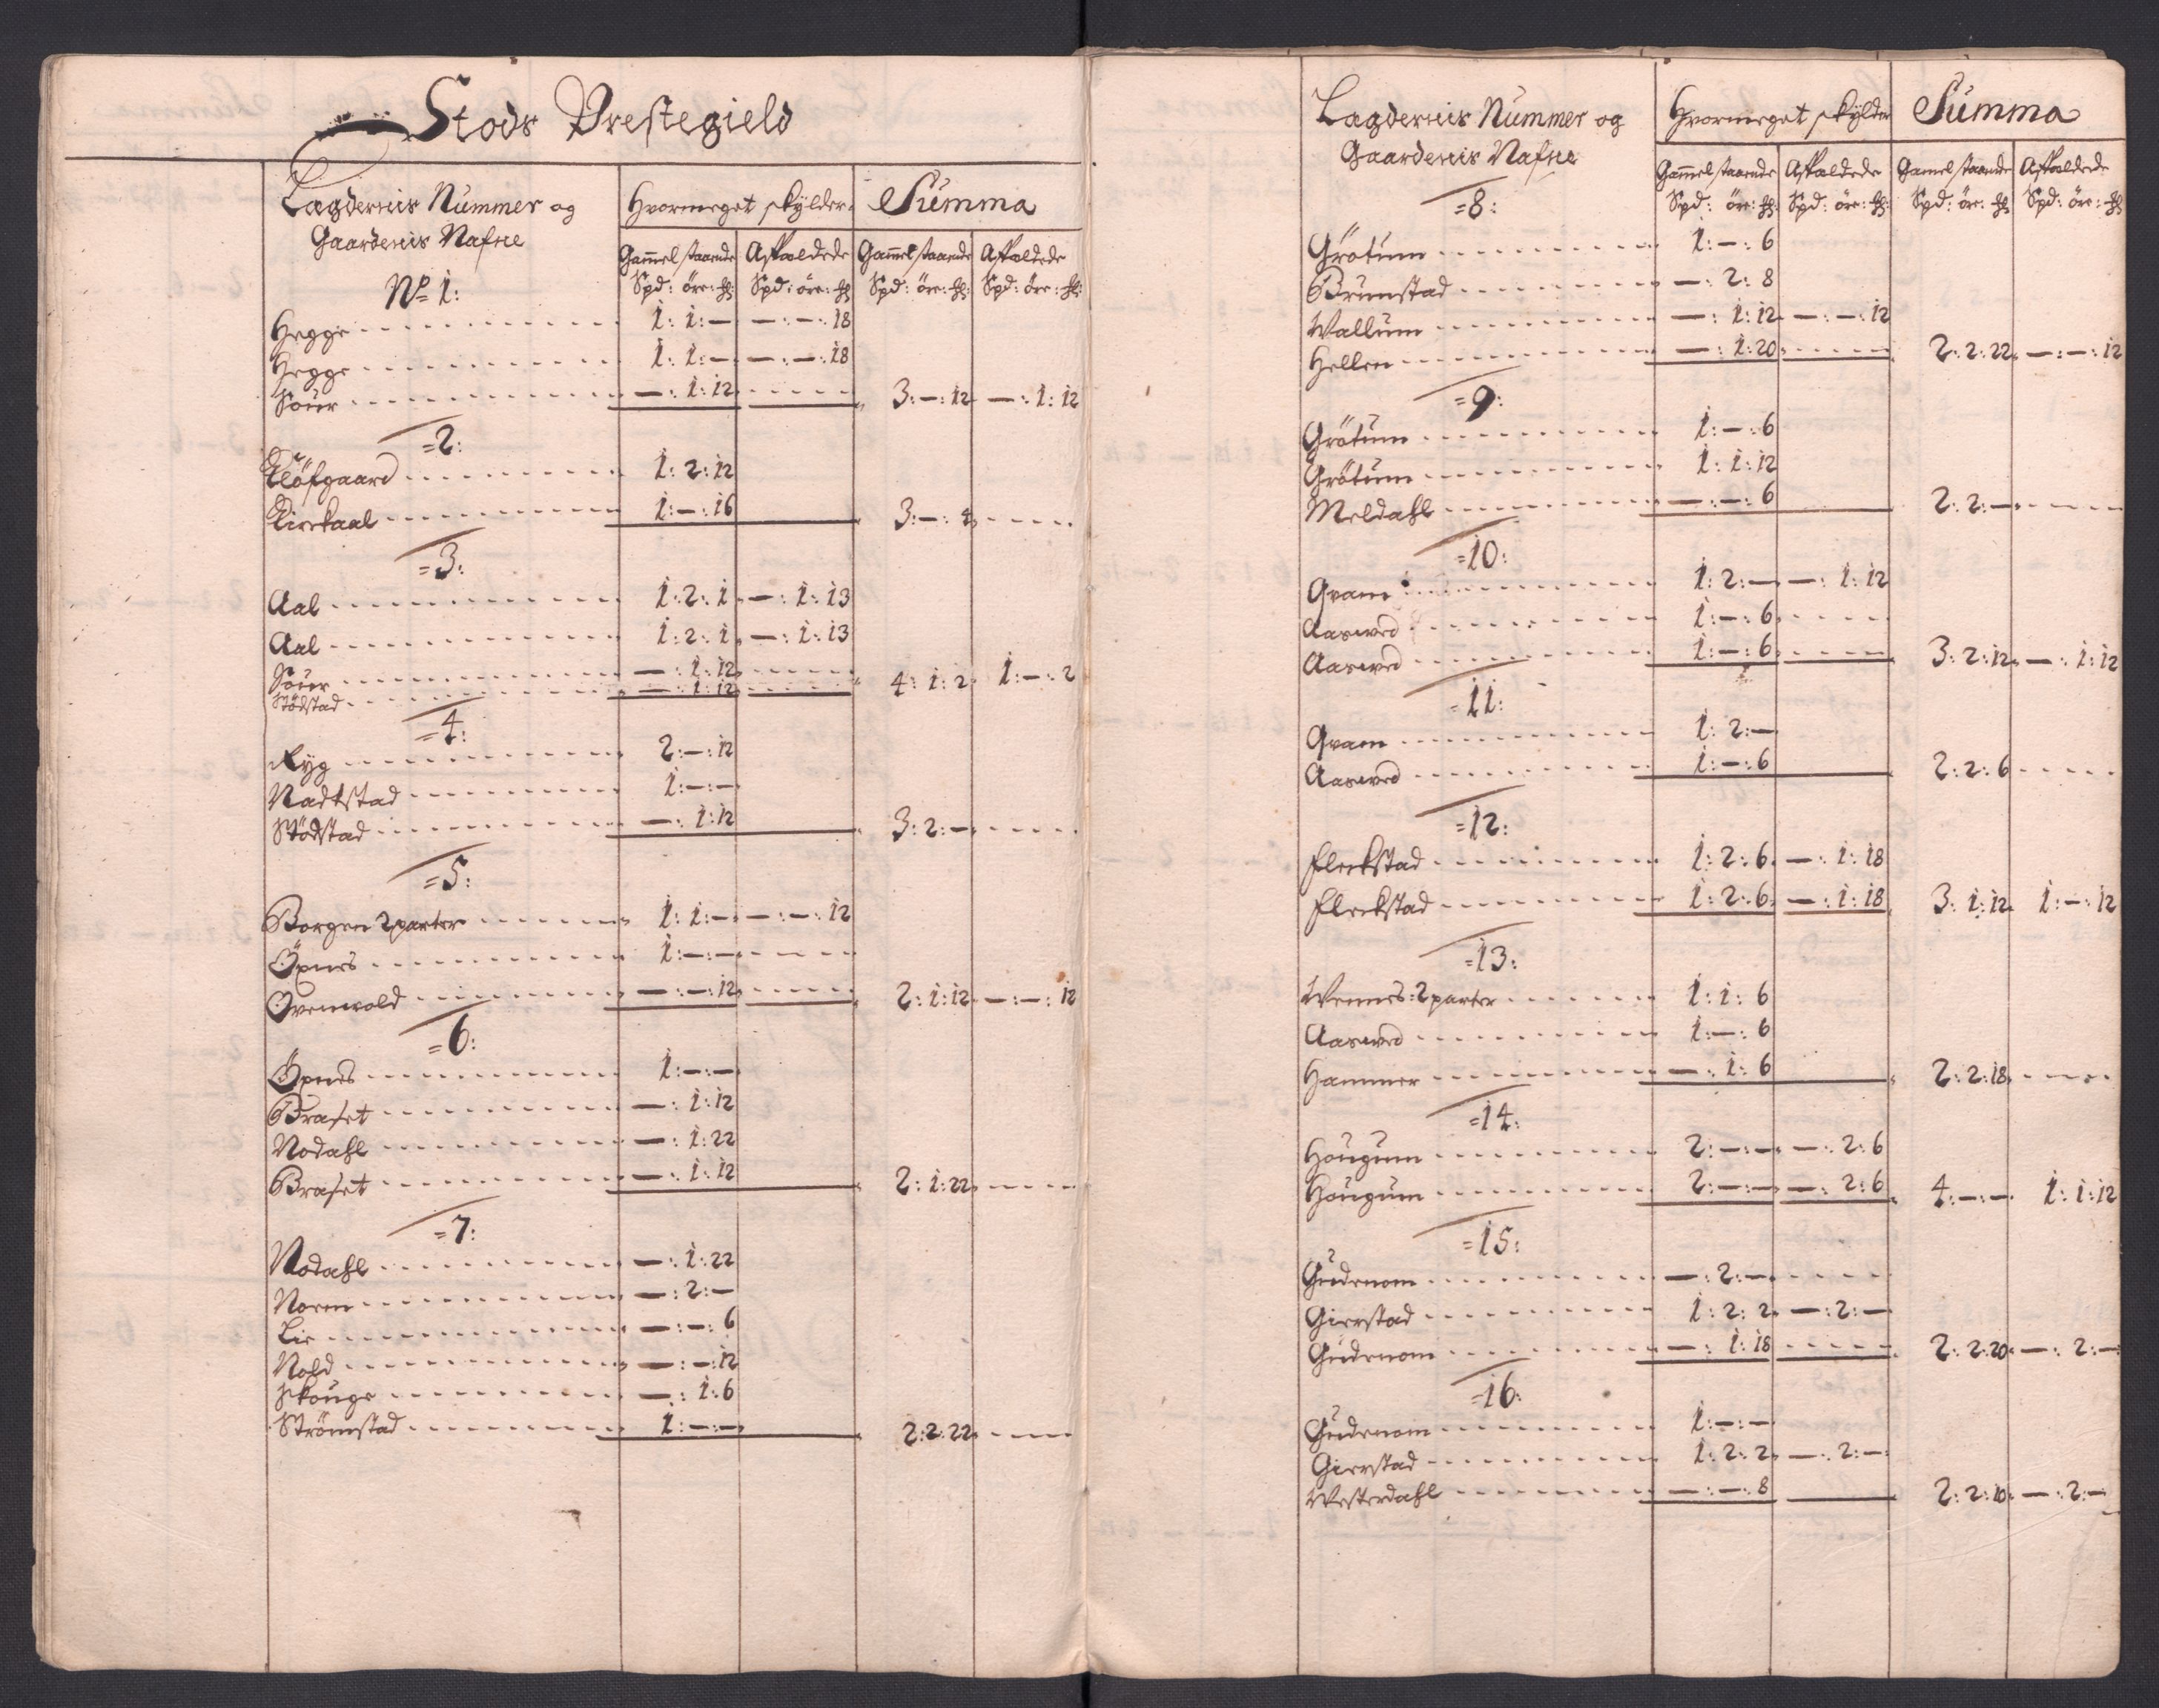 Stods Prestegield
Lagdernis Nummer og Hvormeget skylder Summa
Gaardenis Nafne Gammel staaende Afkaldede Gammel staaende Afkaldede
Spd: öre: Spd: öre: Spd: öre: Spd: öre:
No 1:
Hegge 1: 1: — —: —: 18
Hegge 1: 1: — —: —: 18
Söur —: 1: 12 3: —: 12 —: 1: 12
=2:
Klöfgaard 1: 2: 12
Kirckaal 1: —: 16 3: —: 4
=3:
Aal 1: 2: 1 —: 1: 13
Aal 1: 2: 1 —: 1: 13
Söur —: 1: 12
Stödstad —: 1: 12 4: 1: 2 1: —: 2
=4:
Ryg 2: —: 12
Nadkstad 1: —: —
Stödstad —: 1: 12 3: 2: —
=5:
Borgen 2 parter 1: 1: — —: —: 12
Öxnes 1: —: —
Ovenvold —: —: 12 2: 1: 12 —: —: 12
=6:
Öxnes 1: —: —
Braset —: 1: 12
Nodahl —: 1: 22
Braset —: 1: 12 2: 1: 22
=7:
Nodahl —: 1: 22
Noren —: 2: —
Lie —: —: 6
Nold —: —: 12
Skouge —: 1: 6
Strömstad 1: —: — 2: 2: 22
Lagdernis Nummer og Hvormeget skylder Summa
Gaardenis Nafne Gammel staaende Afkaldede Gamel staaende Afkaldede
Spd: öre: Spd: öre: Spd: öre: Spd: öre:
=8:
Grötum 1: —: 6
Brunstad —: 2: 8
Wallum —: 1: 12 —: —: 12
Hellen —: 1: 20 2: 2: 22 —: —: 12
=9:
Grötum 1: —: 6
Grötum 1: 1: 12
Meldahl —: —: 6 2: 2: —
=10:
Qvam 1: 2: — —: 1: 12
Aasved 1: —: 6
Aasved 1: —: 6 3: 2: 12 —: 1: 12
=11:
Qvam 1: 2: —
Aasved 1: —: 6 2: 2: 6
=12:
Fleckstad 1: 2: 6 —: 1: 18
Fleckstad 1: 2: 6 —: 1: 18 3: 1: 12 1: —: 12
=13:
Wennes: 2 parter 1: 1: 6
Aasved 1: —: 6
Hammer —: 1: 6 2: 2: 18
=14:
Hougum 2: —: — —: 2: 6
Hougum 2: —: — —: 2: 6 4: —: — 1: 1: 12
=15:
Gudenom —: 2: —
Gierstad 1: 2: 2 —: 2: —
Gudenom —: 1: 18 2: 2: 20 —: 2: —
=16:
Gudenom 1: —: —
Gierstad 1: 2: 2 —: 2: —
Westerdahl —: —: 8 2: 2: 10 —: 2: —